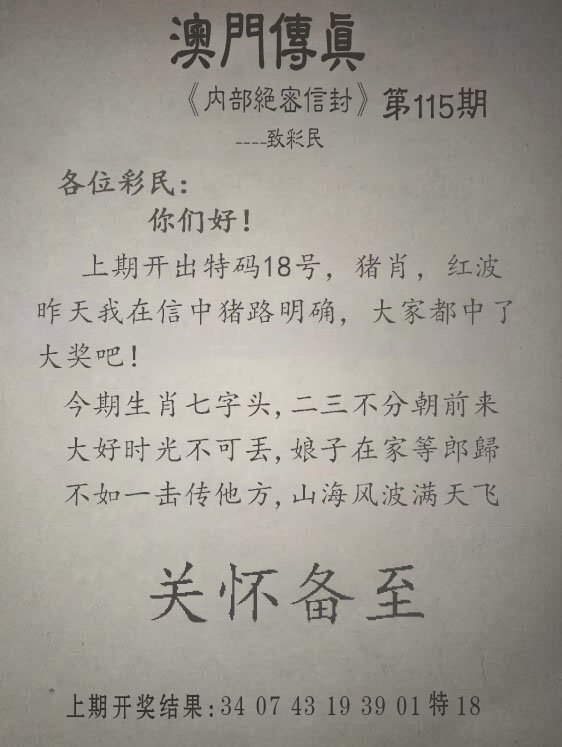 澳門傳眞
《内部絕密信封》第115期
----致彩民
各位彩民：
你们好！
上期开出特码18号，猪肖，红波
昨天我在信中猪路明确，大家都中了
大奖吧！
今期生肖七字头,二三不分朝前来
大好时光不可丢,娘子在家等郎歸
不如一击传他方,山海风波满天飞
关怀备至
上期开奖结果:34 07 43 19 39 01 特 18